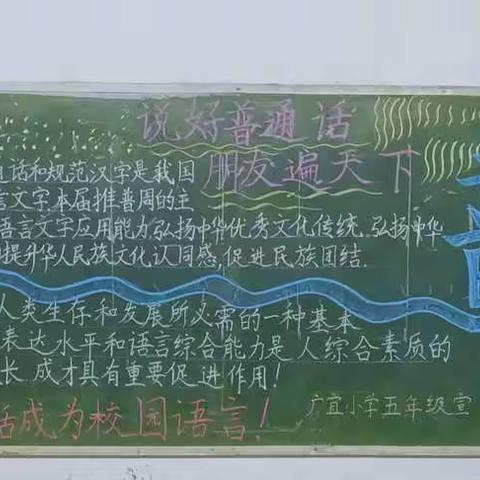 说好普通话
朋友遍天下
通话和规范汉字是我国
言文字本届推普周的主
语言文字应用能力弘扬中华优秀文化传统.弘扬中华
提升华人民族文化认同感,促进民族团结.
人类生存和发展所必需的一种基本
表达水平和语言综合能力是人综合素质的
长.成才具有重要促进作用!
话成为校园语言!
广宜小学五年级宣